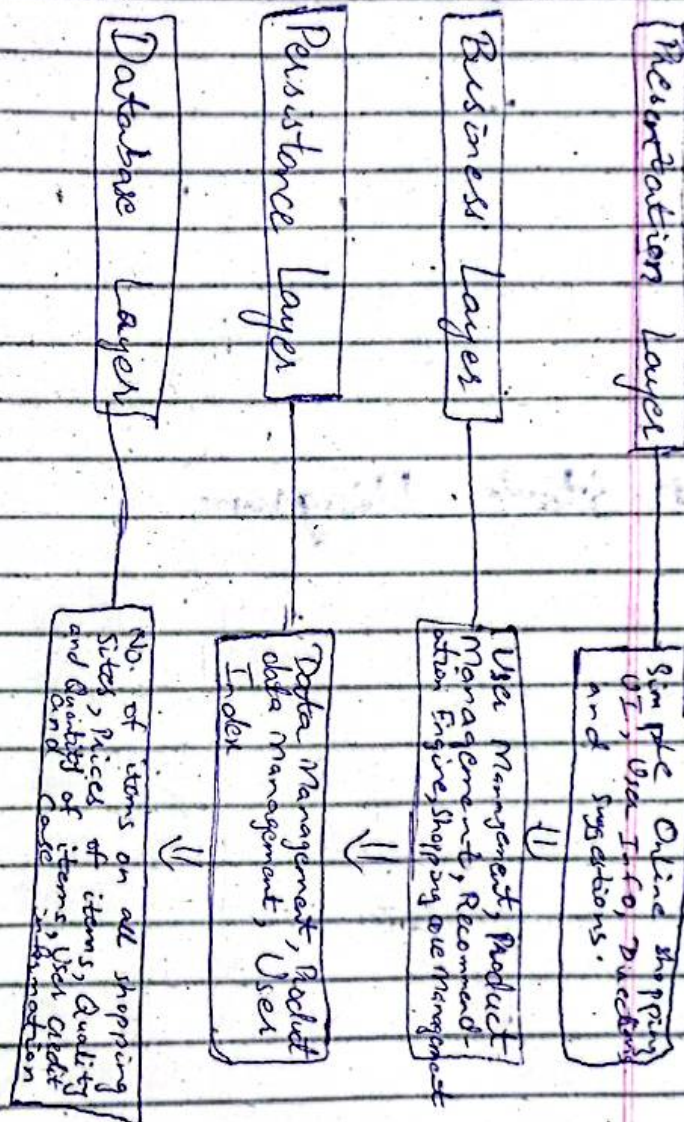 Presentation Layer
Simple Online shopping
UI, User Info, Directions
and Suggestions.
Business Layer
User Management, Product
Management, Recommend-
ation Engine, Shopping Management
Persistance Layer
Data Management, Product
data Management, User
Index
Database Layer
No. of items on all shopping
Sites, Prices of items, Quality
and Quantity of items, User Credit
and information